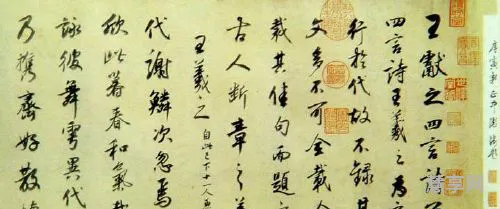 王獻之四言詩
四言詩王羲之為
行於代故不錄其
文多不可全載
裁其佳句而題之
古人斷章之義
王羲之 自此已下十一人五
代謝鱗次忽焉
欣此暮春和氣載
詠彼舞雩異代
乃携齊好散